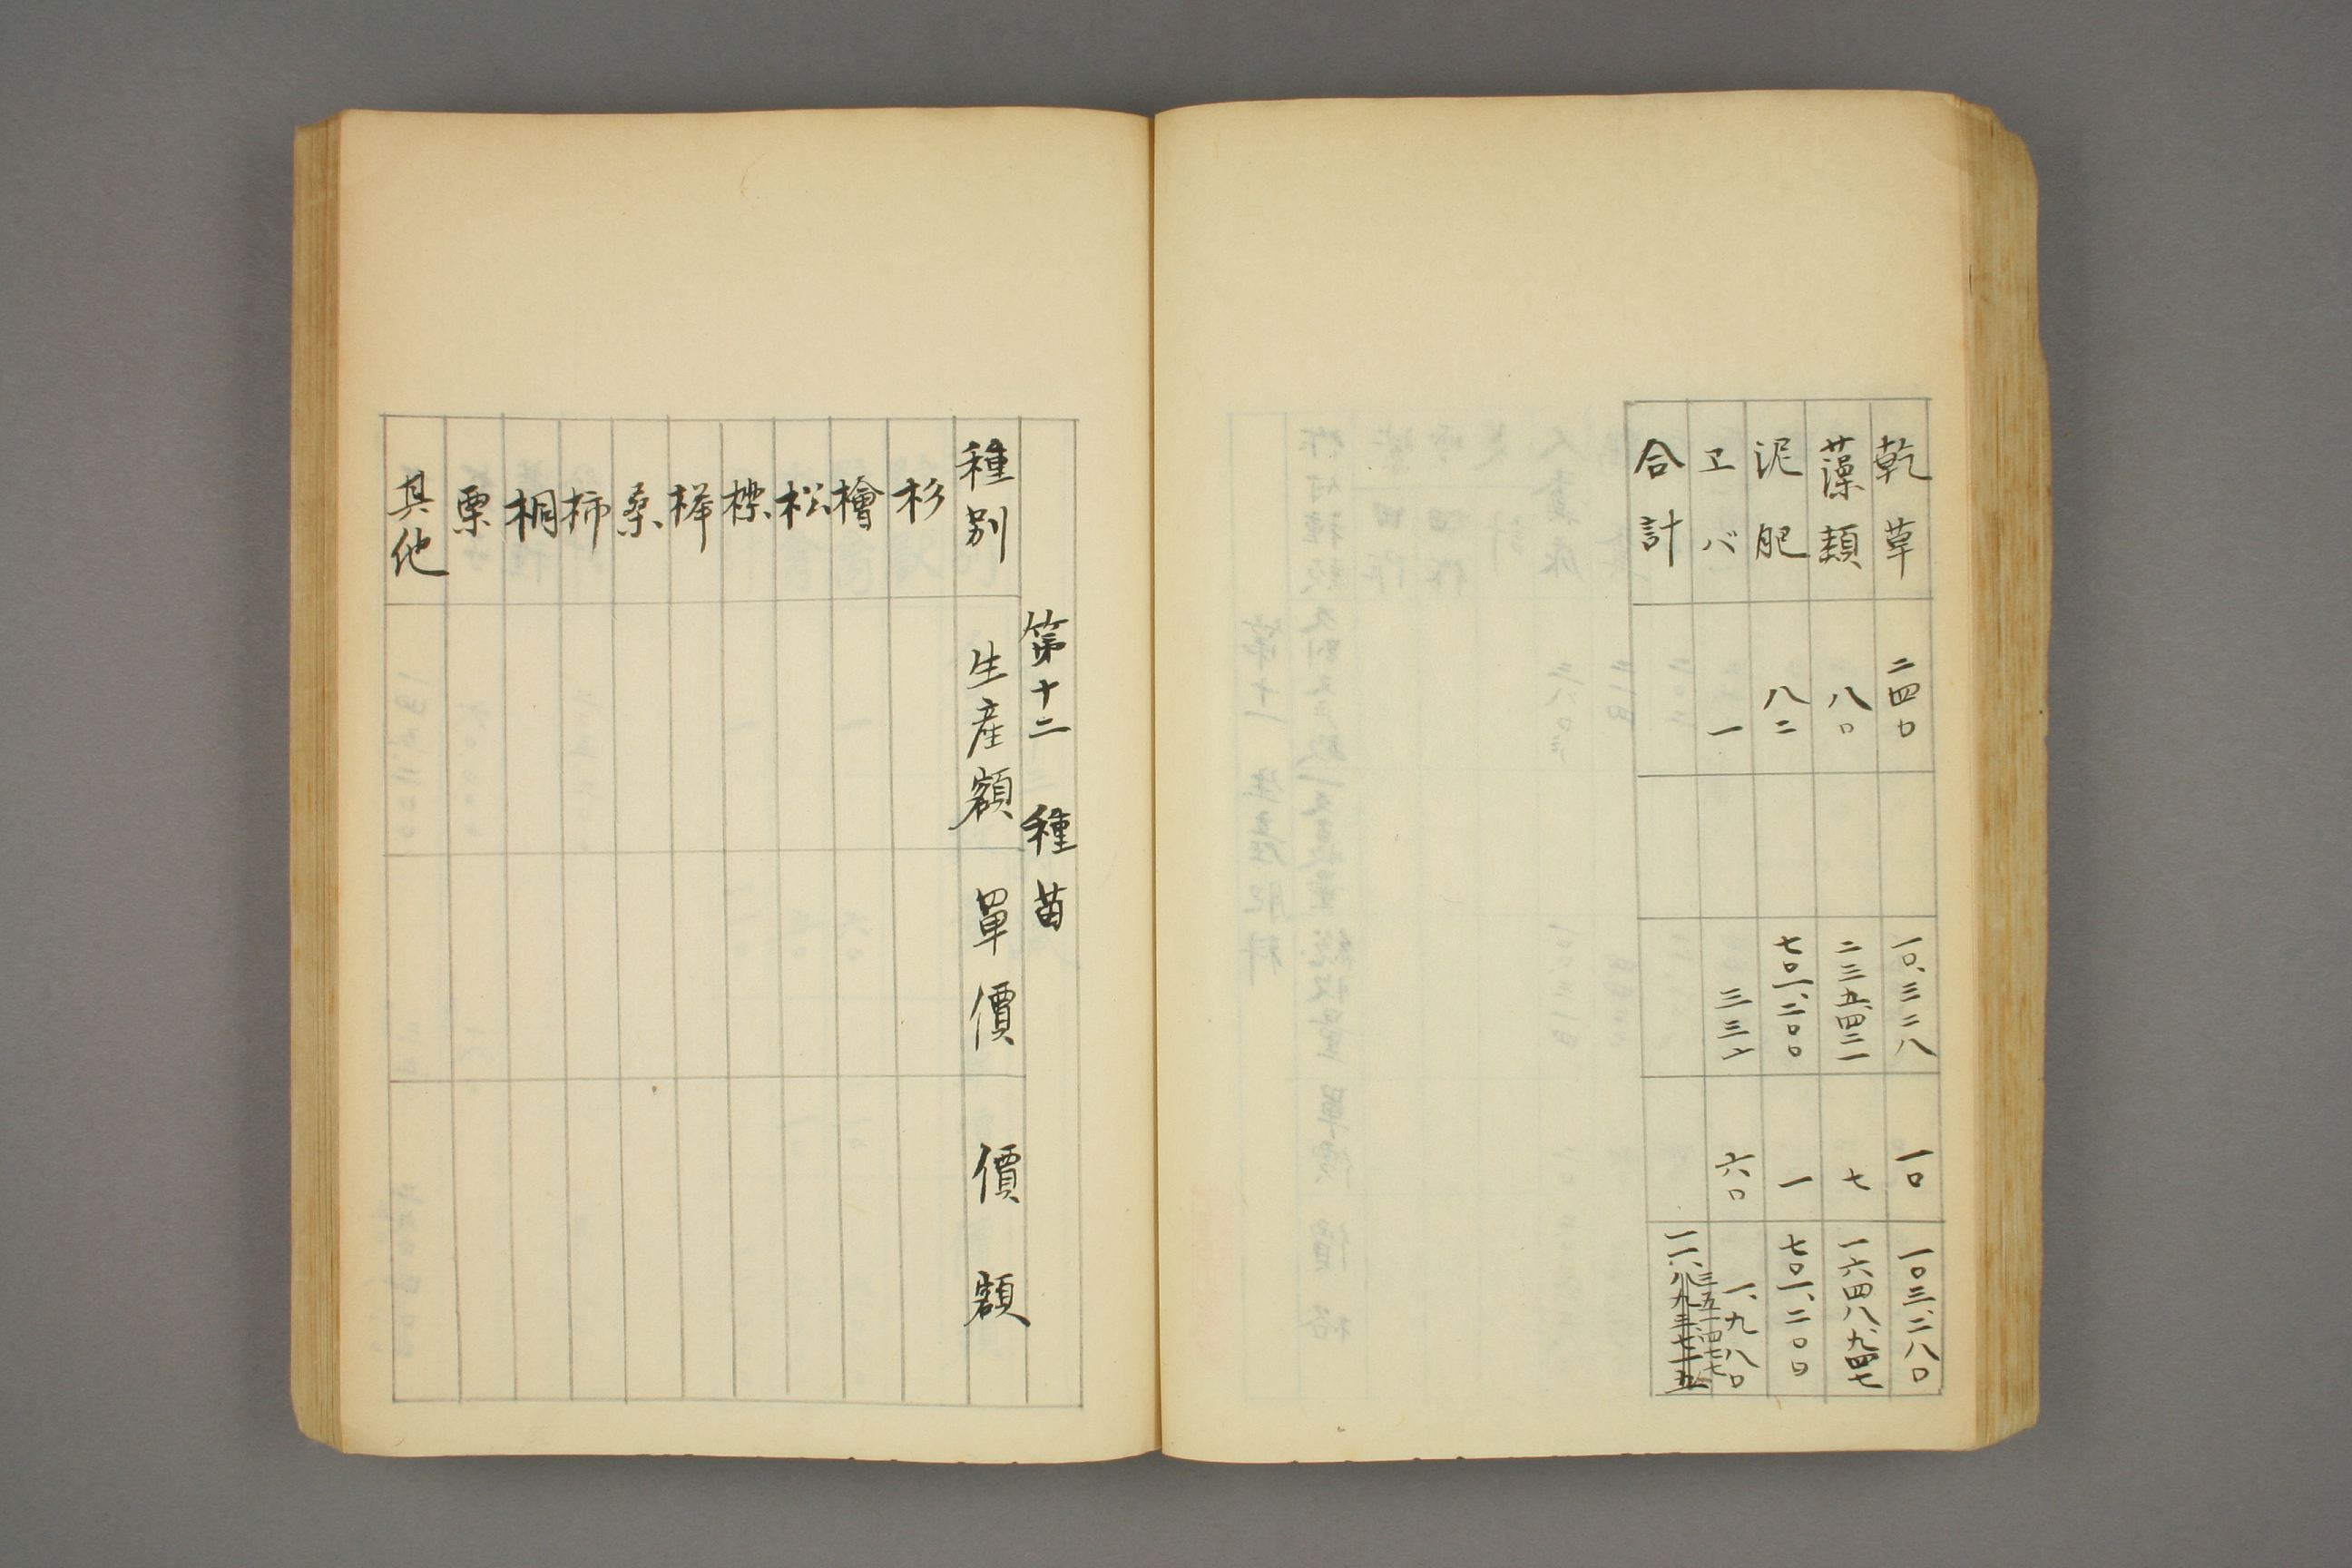 乾草 二四〇 一〇、三二八 一〇 一〇三、二八〇
藻類 八〇 二三五、四二一 七 一六四八、九四七
泥肥 八二 七〇一、二〇〇 一 七〇一、二〇〇
ヱバ 一 三三 六〇 一、九八〇
合計
第十二 種苗
種別 生産額 單價 價額
杉
檜
松
桑
柿
桐
栗
其他